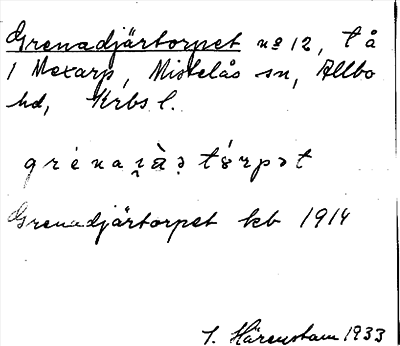 Grenadjärtorpet nº 12, t å
1 Mexarp, Mistelås sn, Allbo
hd, Krbs l.
Grenadjärtorpet kb 1914
I. Härenstam 1933